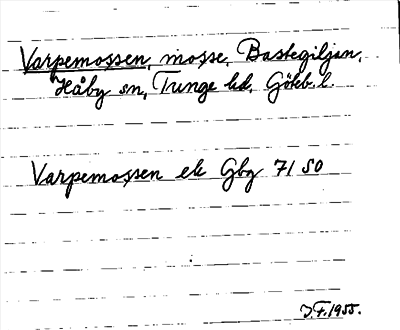 Varpemossen, mosse, Bastegiljan,
Håby sn, Tunge hd, Göteb. l.
Varpemossen ek Gbg 71 SO
J.F. 1955.